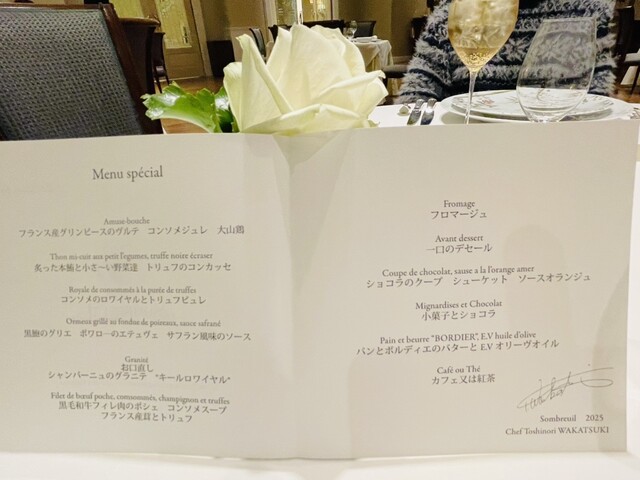 Menu spécial
Amuse-bouche
フランス産グリンピースのヴルテ　コンソメジュレ　大山鶏
Thon mi-cuit aux petit legumes, truffe noire écraser
炙った本鮪と小さ〜い野菜達　トリュフのコンカッセ
Royale de consommés à la purée de truffes
コンソメのロワイヤルとトリュフピュレ
Ormeux grillé au fondue de poireaux, sauce safrané
黒鮑のグリエ　ポワローのエテュヴェ　サフラン風味のソース
Granité
お口直し
シャンパーニュのグラニテ　“キールロワイヤル”
Filet de bœuf poche, consommés, champignon et truffes
黒毛和牛フィレ肉のポシェ　コンソメスープ
フランス産茸とトリュフ
Fromage
フロマージュ
Avant dessert
一口のデセール
Coupe de chocolat, sause a la l'orange amer
ショコラのクープ　シューケット　ソースオランジュ
Mignardises et Chocolat
小菓子とショコラ
Pain et beurre “BORDIER”, E.V huile d'olive
パンとボルディエのバターと E.V オリーヴオイル
Café ou Thé
カフェ又は紅茶
Sombreuil　2025
Chef Toshinori WAKATSUKI